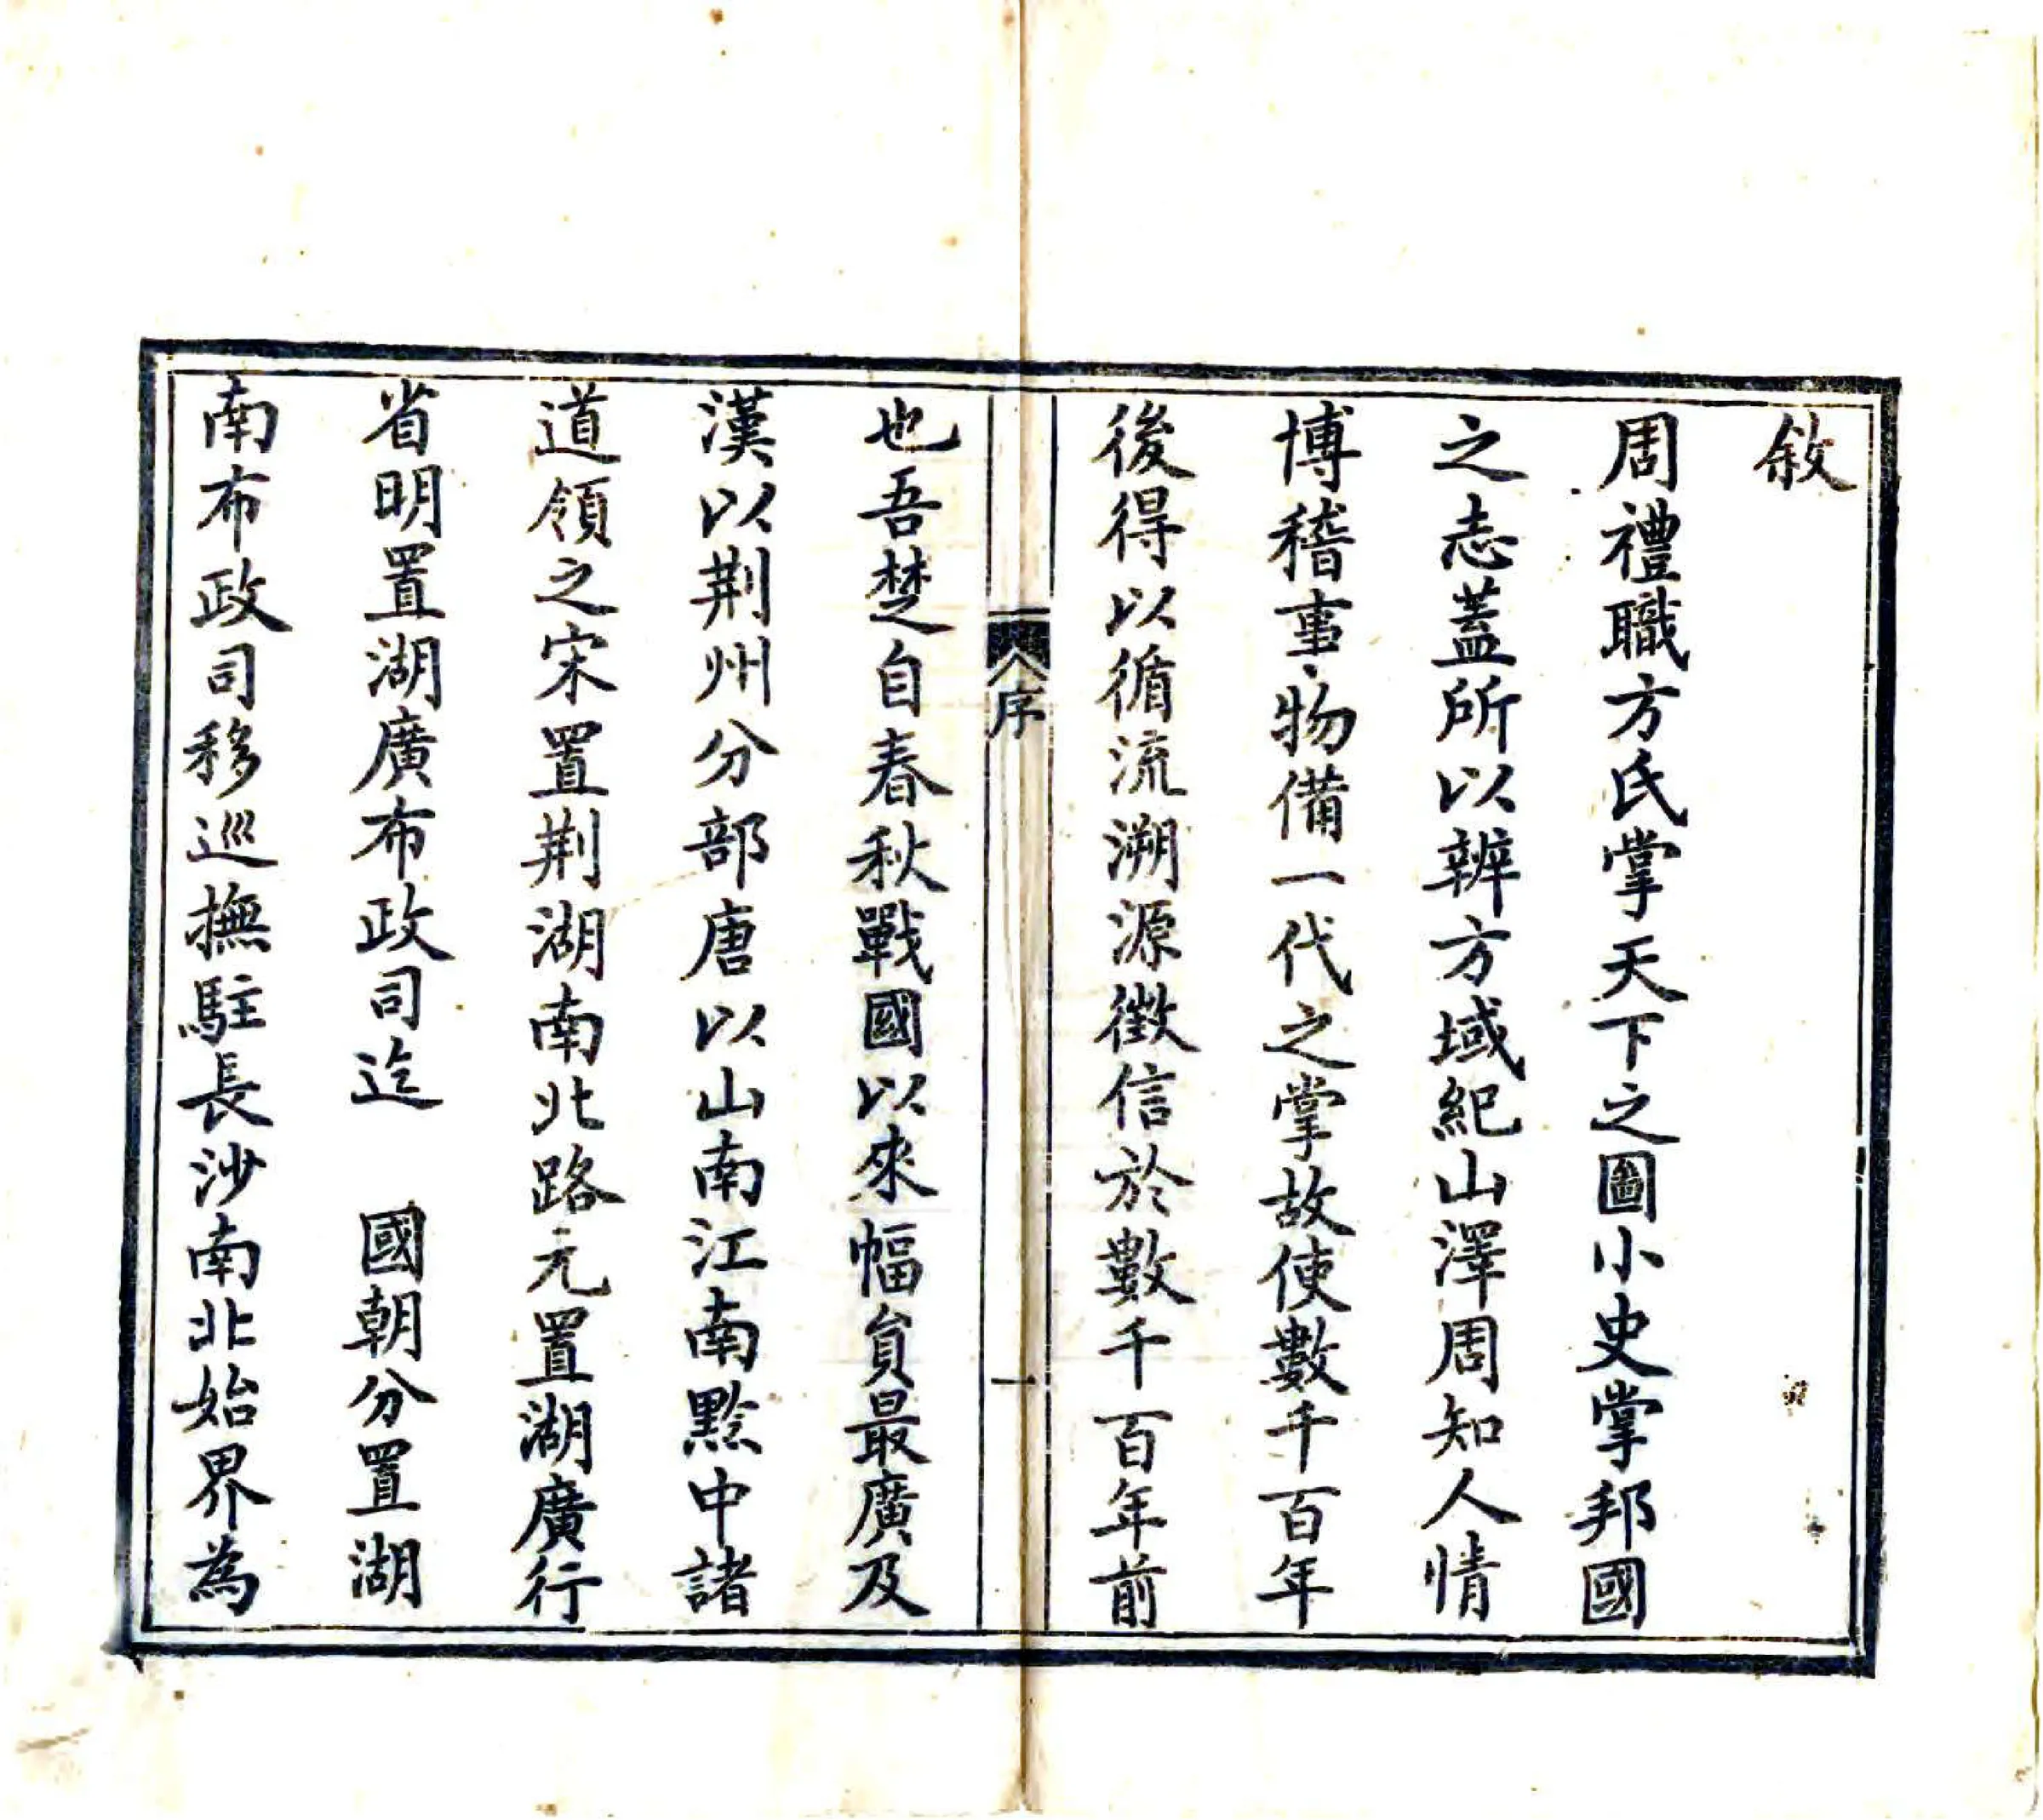 敘
周禮職方氏掌天下之圖小史掌邦國
之志蓋所以辨方域紀山澤周知人情
博稽事物備一代之掌故使數千百年
後得以循流溯源徵信於數千百年前
序
一
也吾楚自春秋戰國以來幅員最廣及
漢以荆州分部唐以山南江南黔中諸
道領之宋置荆湖南北路元置湖廣行
省明置湖廣布政司迄　國朝分置湖
南布政司移巡撫駐長沙南北始界為